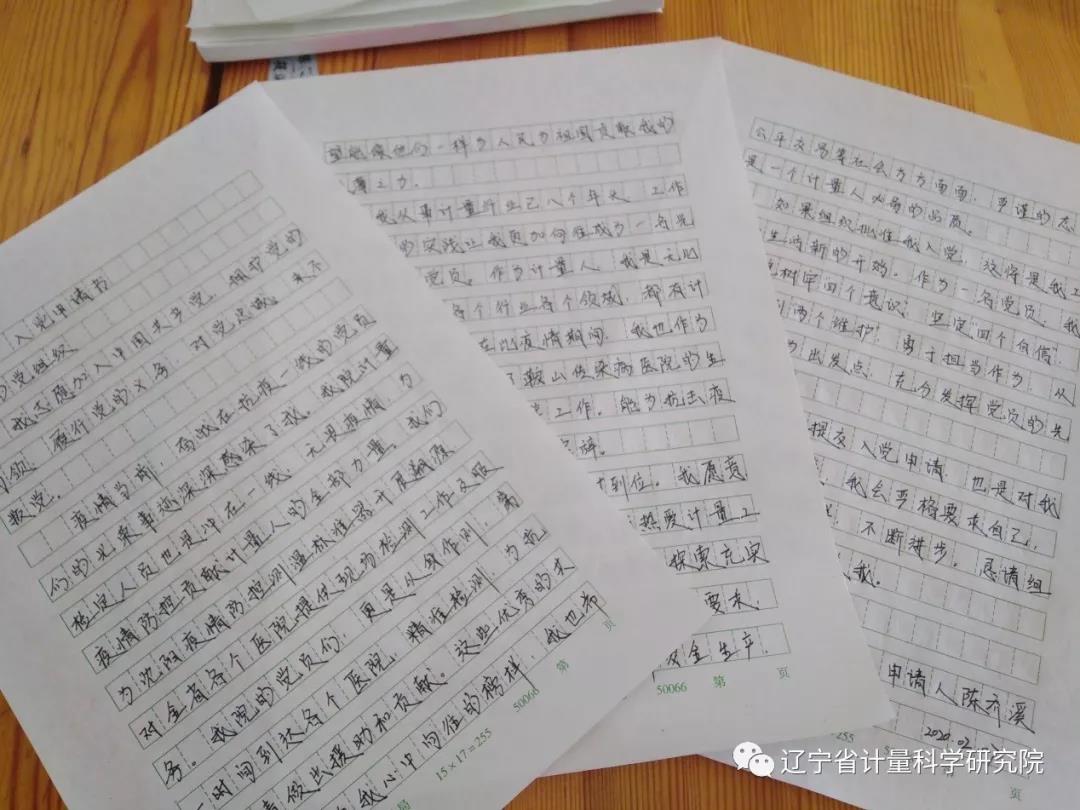 入党申请书
党组织
我志愿加入中国共产党,拥护党的
纲领,履行党的义务,对党忠诚,永不
叛党。
疫情当前,奋战在抗疫一线的党员
们的光荣事迹深深感染了我。我院计量
检定人员也是冲在一线,无畏疫情,为
疫情防控贡献计量人的全部力量。我们
为沈阳疫情防控测温标准器开展溯源
对全省各个医院提供现场检测工作及服
务。我院的党员们,更是从我作则,第
一时间到达各个医院,精准检测,为抗
做出援助和贡献。这些优秀的共
我心中向往的榜样,我也希
页
第
50066
15×17=255
局
望能像他们一样为人民为祖国贡献我的
薄之力。
我从事计量行业已八个年头,工作
的实践让我更加向往成为一名党
党员。作为计量人,我是无比
各个行业各个领域,都有计
在此疫情期间,我也作为
了鞍山传染病医院的生
工作。能为抗击疫
辞。
到位。我愿意
热爱计量工
探索充实
要求,
安全生产,
50066 第 页
公平交易等社会方方面面,严谨的态
是一个计量人必备的品质。
如果组织批准我入党,这将是我人
生崭新的开始。作为一名党员,我
树牢四个意识,坚定"四个自信"
两个维护,勇于担当作为,从
为出发点,充分发挥党员的先
提交入党申请,也是对我
,我会严格要求自己,
,不断进步。恳请组
我。
申请人陈齐溪
2020.02
255
页
辽宁省计量科学研究院